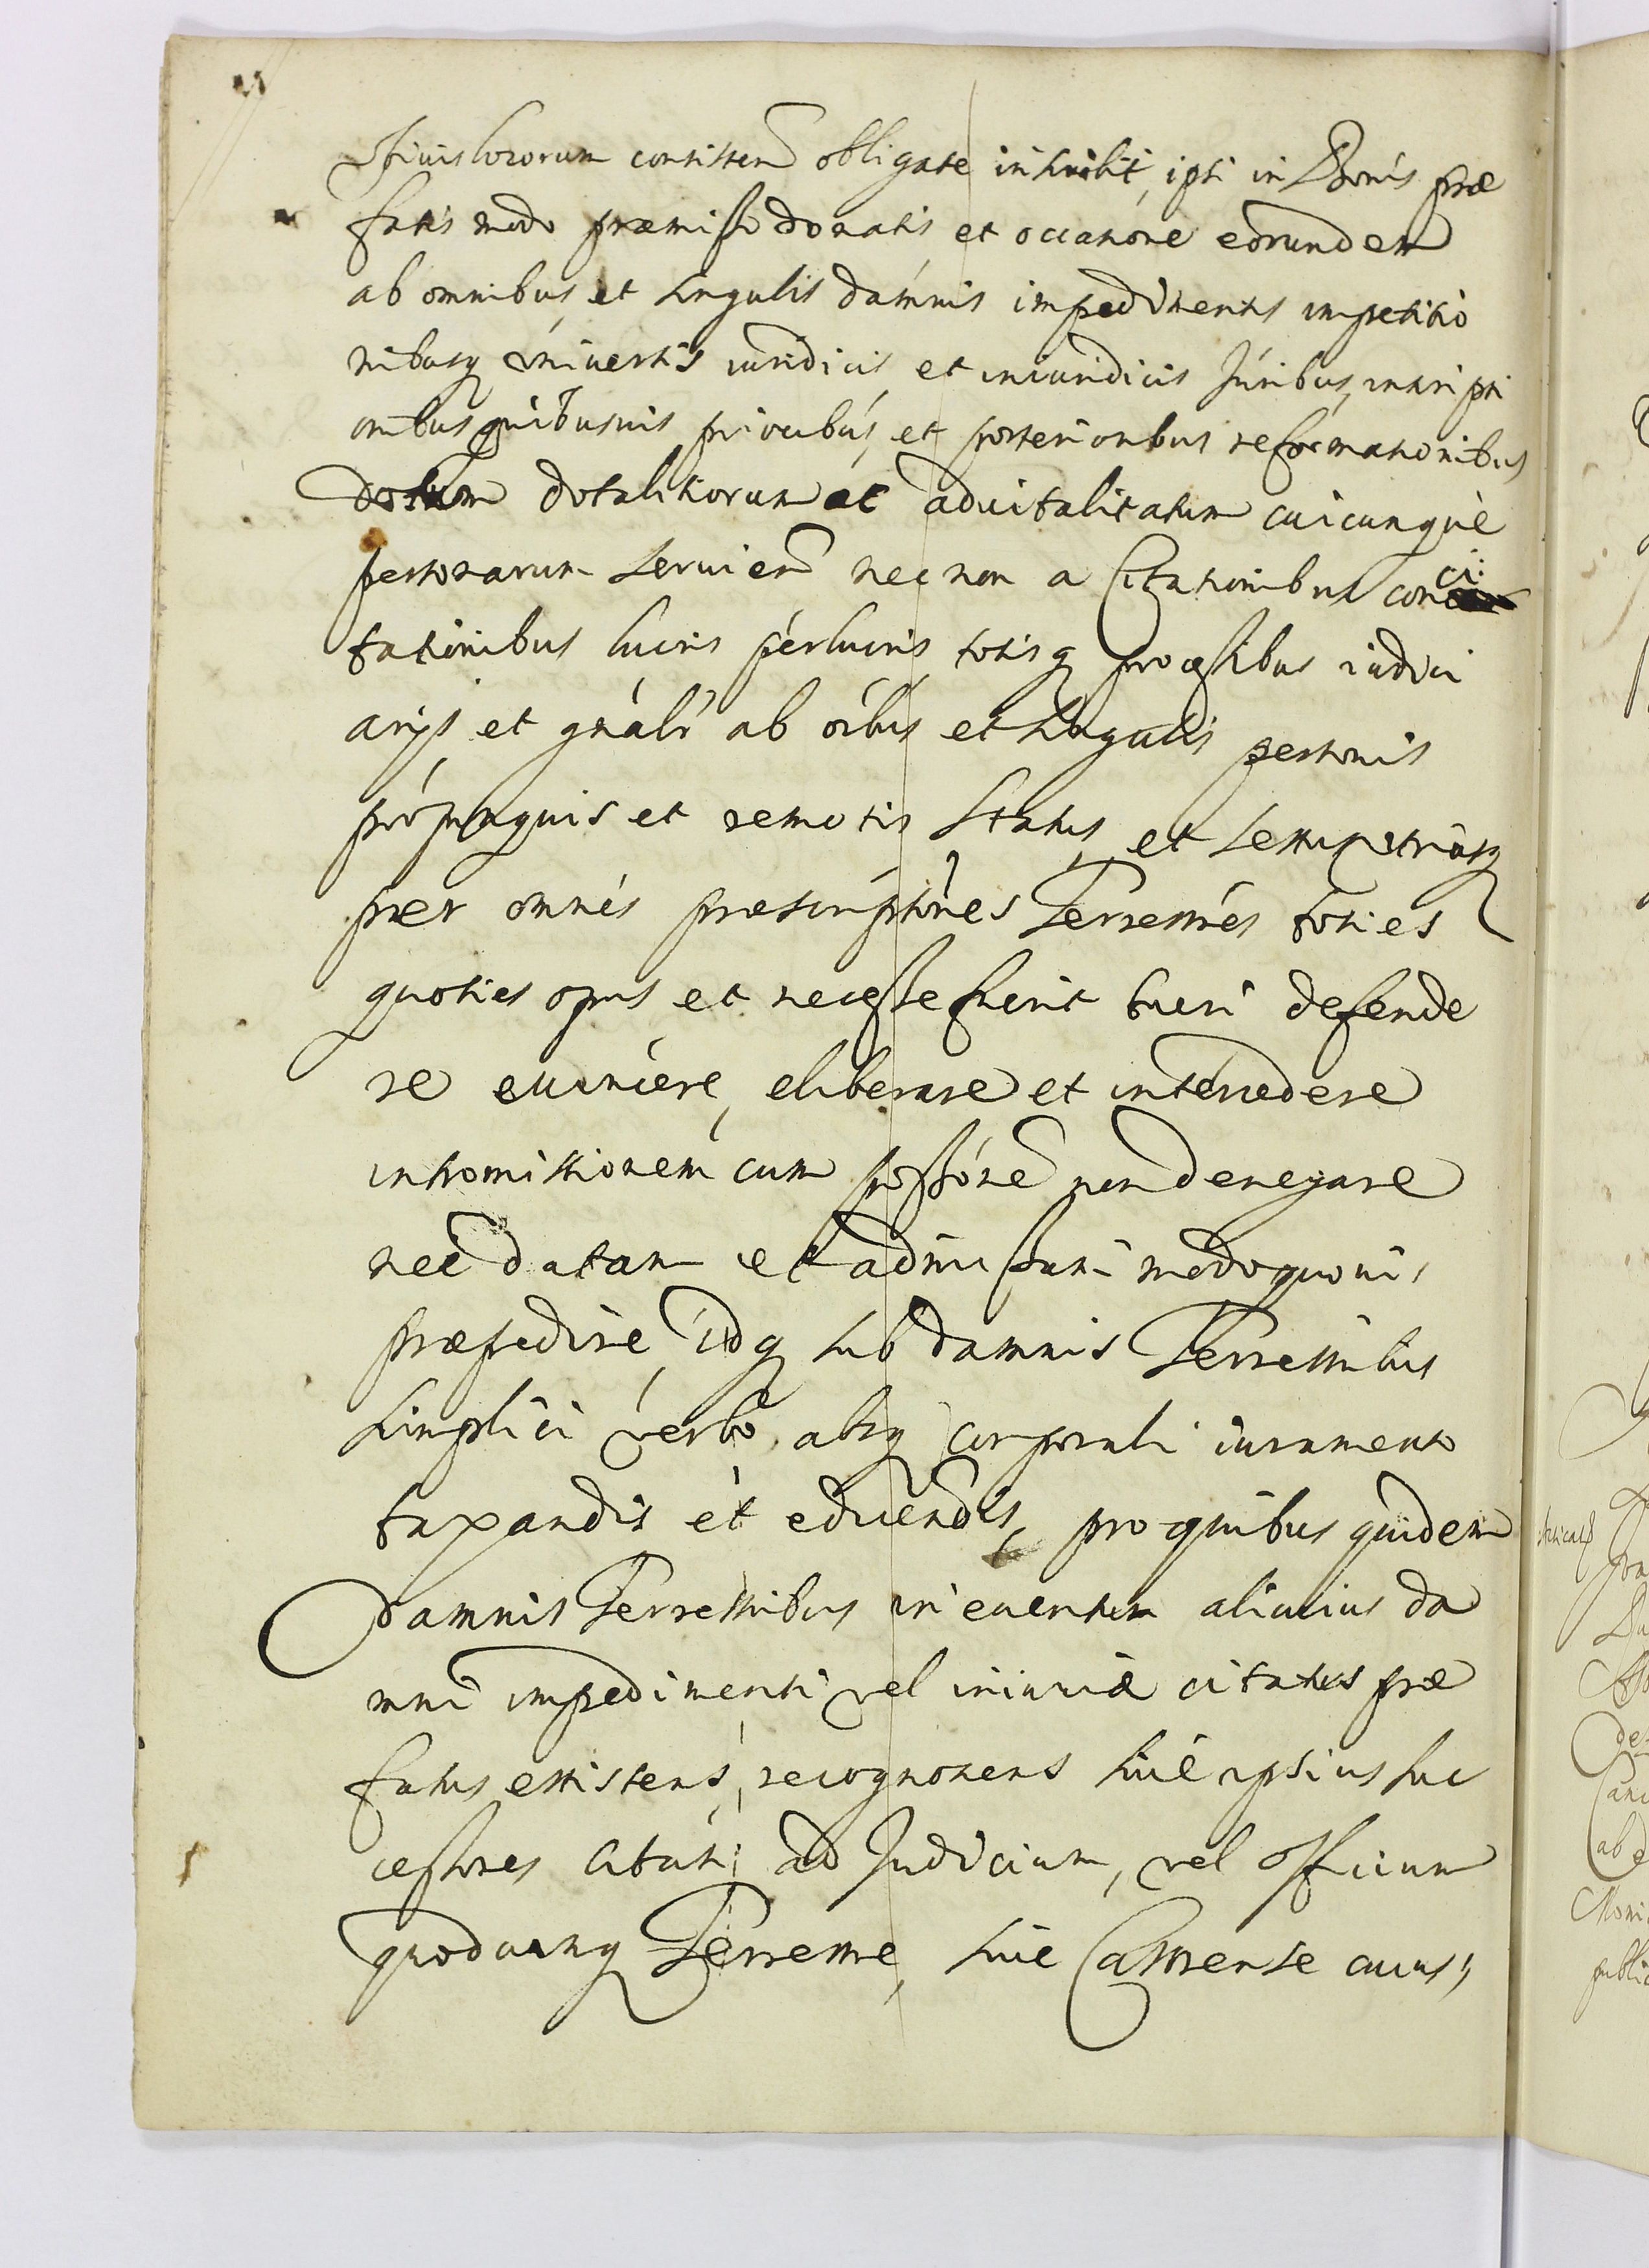 consisten obligare inscribit, ipsi in Bonis præ
fatis modo præmisso donatis et occasione eorundem
ab omnibus et singulis damnis impedimentis impetitio
nibusq universis iuridicis et iniuridicis Juribus, inscripti
onibus quibusuis prioribus, et posterioribus reformationibus
dotum dotalitiorum ac aduitalitatum cuicunque
personarum seruien nec non a Citationibus conci:
tationibus lucris perlucris totisq processibus iudici
arijs et gnalr oibus et singulis personis
propinquis et remotis status et sexus utriusq
per omnes præscriptiones Terrestres toties
quoties opus et necesse fuerit tueri defende
re euincere, eliberare et intercedere
intromissionem cum possone non denegare
nec datam et admissam modoquouis
præpedire, idq sub damnis Terrestribus
simplici verbo absq corporali iuramento
taxandis et educendis, pro quibus quidem
Damnis Terrestribus in euentum alicuius da
mni impedimenti vel iniuriæ citatus præ
fatus existens, recognoscens siue ipsius suc
cessores citati ad Judicium, vel officium
quodcunq Terrestre, siue Castrense cuius,,